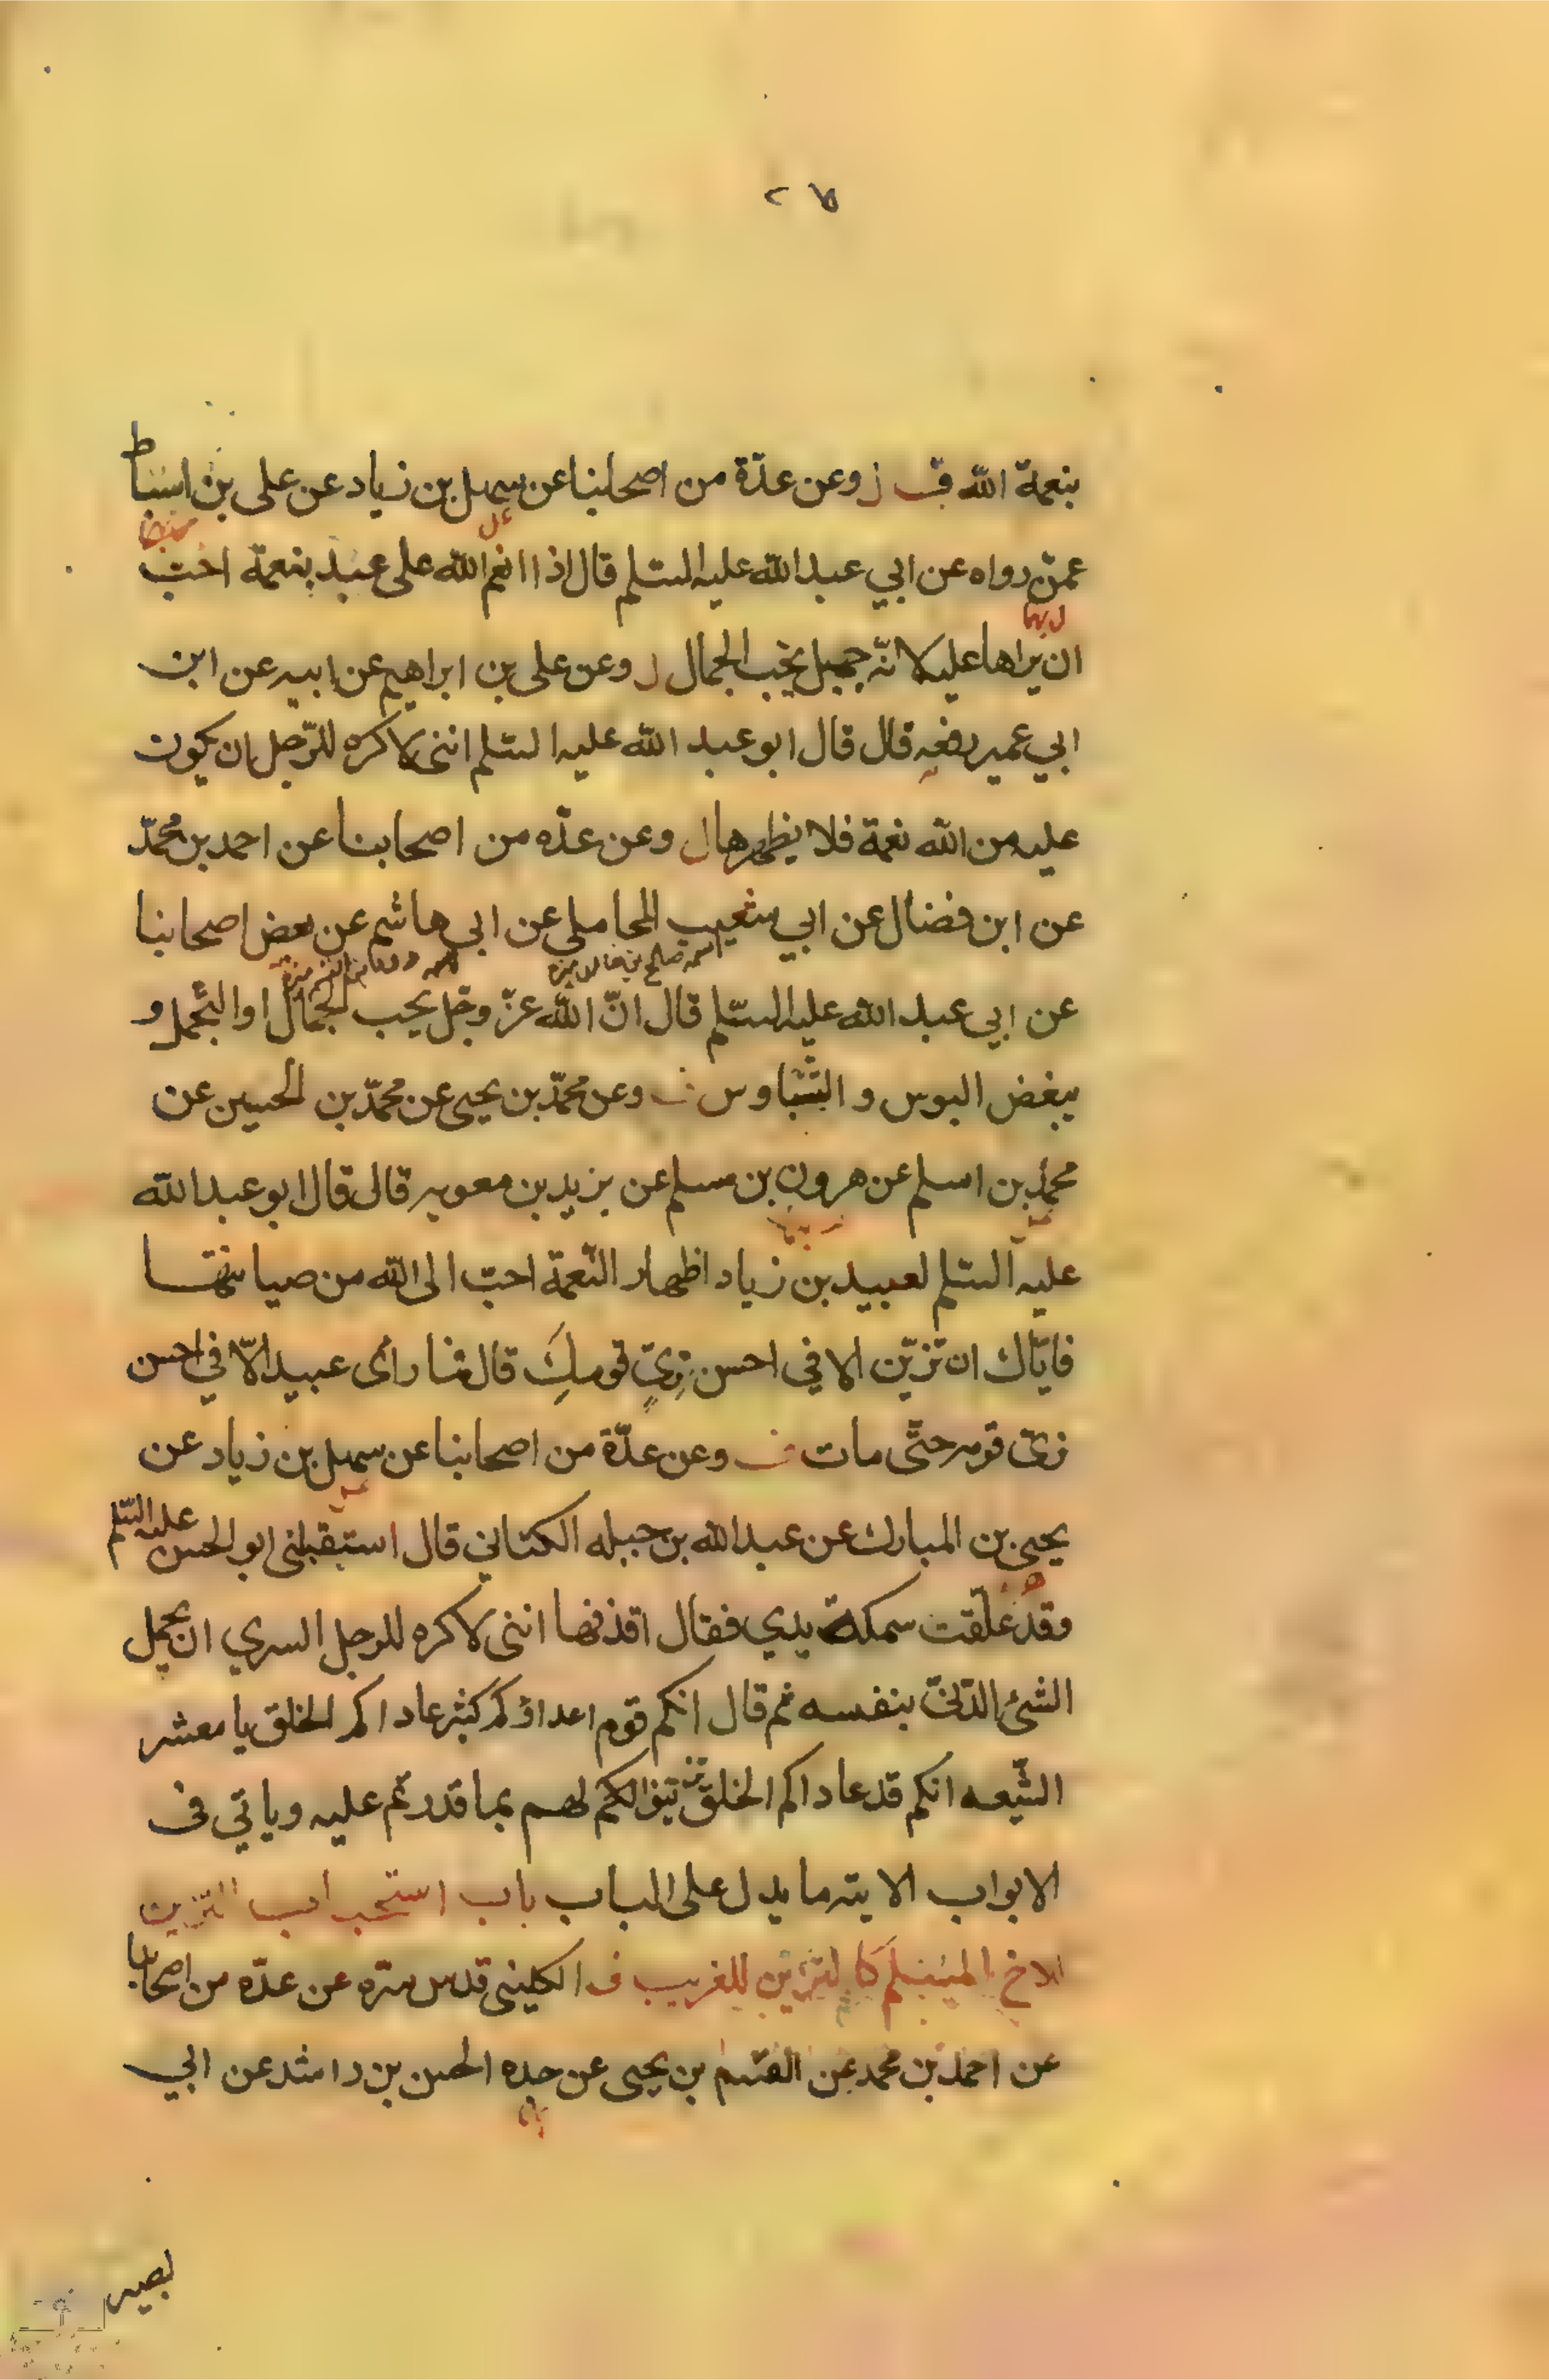 بنعمة الله ف وعن عدّة من اصحابنا عن سهل بن زياد عن على بن اسباط
عمّن رواه عن ابي عبد الله عليه السّلم قال اذا انعم الله على عبد بنعمة احبّ
ان يراها عليه لانّه جميل يحب الجمال ل وعن على بن ابراهيم عن ابيه عن ابن
ابي عمير رفعه قال قال ابو عبد الله عليه السّلم اننى لاكره للرّجل ان يكون
عليه من الله نعمة فلا يظهرها ل وعن عدّه من اصحابنا عن احمد بن محمّد
عن ابن فضال عن ابي شعيب المحاملى عن ابي هاشم عن بعض اصحابنا
اسمه صالح بن خالد
عن ابي عبد الله عليه السّلم قال انّ الله عزّ وجّل يحب الجمال او التّجمل و
يبغض البوس و التّباوس ف وعن محمّد بن يحيى عن محمّد بن الحسين عن
محمّد بن اسلم عن هرون بن مسلم عن بزيد بن معويه قال قال ابو عبد الله
عليه السّلم لعبيد بن زياد اظهار النّعمة احبّ الى الله من صيانتها
فايّاك ان تزيّن الا في احسن زيّ قومك قال فما راى عبيد الّا في احسن
زىّ قومه حتّى مات ف وعن عدّة من اصحابنا عن سهل بن زياد عن
يحيى بن المبارك عن عبد الله بن جبله الكنانى قال استقبلنى ابو الحسن عليه السّلم
وقد علّقت سمكة بيدي فقال اقذفها اننى لاكره للرجل السري ان يحمل
الشئ الدّنىّ بنفسه ثم قال انكم قوم اعداؤكم كثير عاداكم الخلق يا معشر
الشّيعه انكم قد عاداكم الخلق فتزيّنوا لهم بما قدرتم عليه وياتي فى
الابواب الاتيه ما يدل على الباب باب استحباب التزين
للاخ المسلم كالتزين للغريب ف الكلينى قدس سرّه عن عدّه من اصحابنا
عن احمد بن محمد عن القسم بن يحيى عن جده الحسن بن راشد عن ابي
بصير